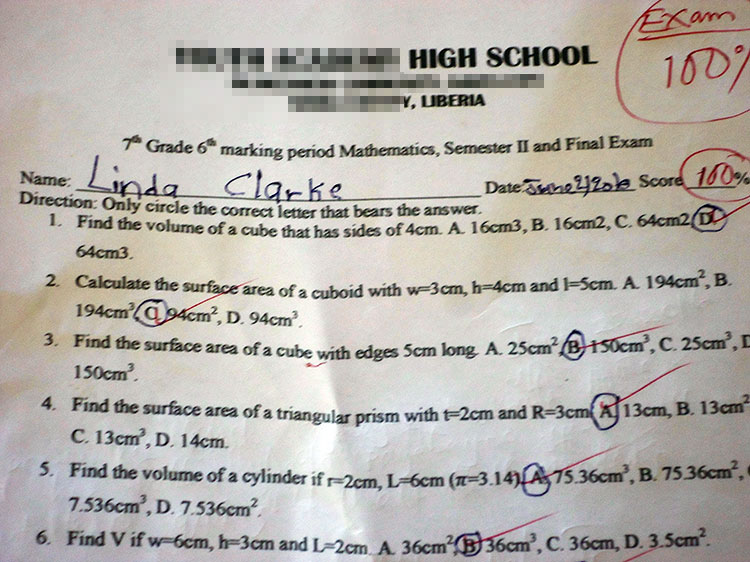 Exam
100%
HIGH SCHOOL
Y, LIBERIA
7th Grade 6th marking period Mathematics, Semester II and Final Exam
Name: Linda Clarke Date: June Score 100%
Direction: Only circle the correct letter that bears the answer.
1. Find the volume of a cube that has sides of 4cm. A. 16cm3, B. 16cm2, C. 64cm2 D.
64cm3.
2. Calculate the surface area of a cuboid with w=3cm, h=4cm and l=5cm. A. 194cm², B.
194cm³, C 94cm², D. 94cm³.
3. Find the surface area of a cube with edges 5cm long. A. 25cm², B. 150cm³, C. 25cm³, D
150cm³.
4. Find the surface area of a triangular prism with t=2cm and R=3cm A. 13cm, B. 13cm²
C. 13cm³, D. 14cm.
5. Find the volume of a cylinder if r=2cm, L=6cm (π=3.14). A. 75.36cm³, B. 75.36cm²,
7.536cm³, D. 7.536cm².
6. Find V if w=6cm, h=3cm and L=2cm. A. 36cm², B 36cm³, C. 36cm, D. 3.5cm².